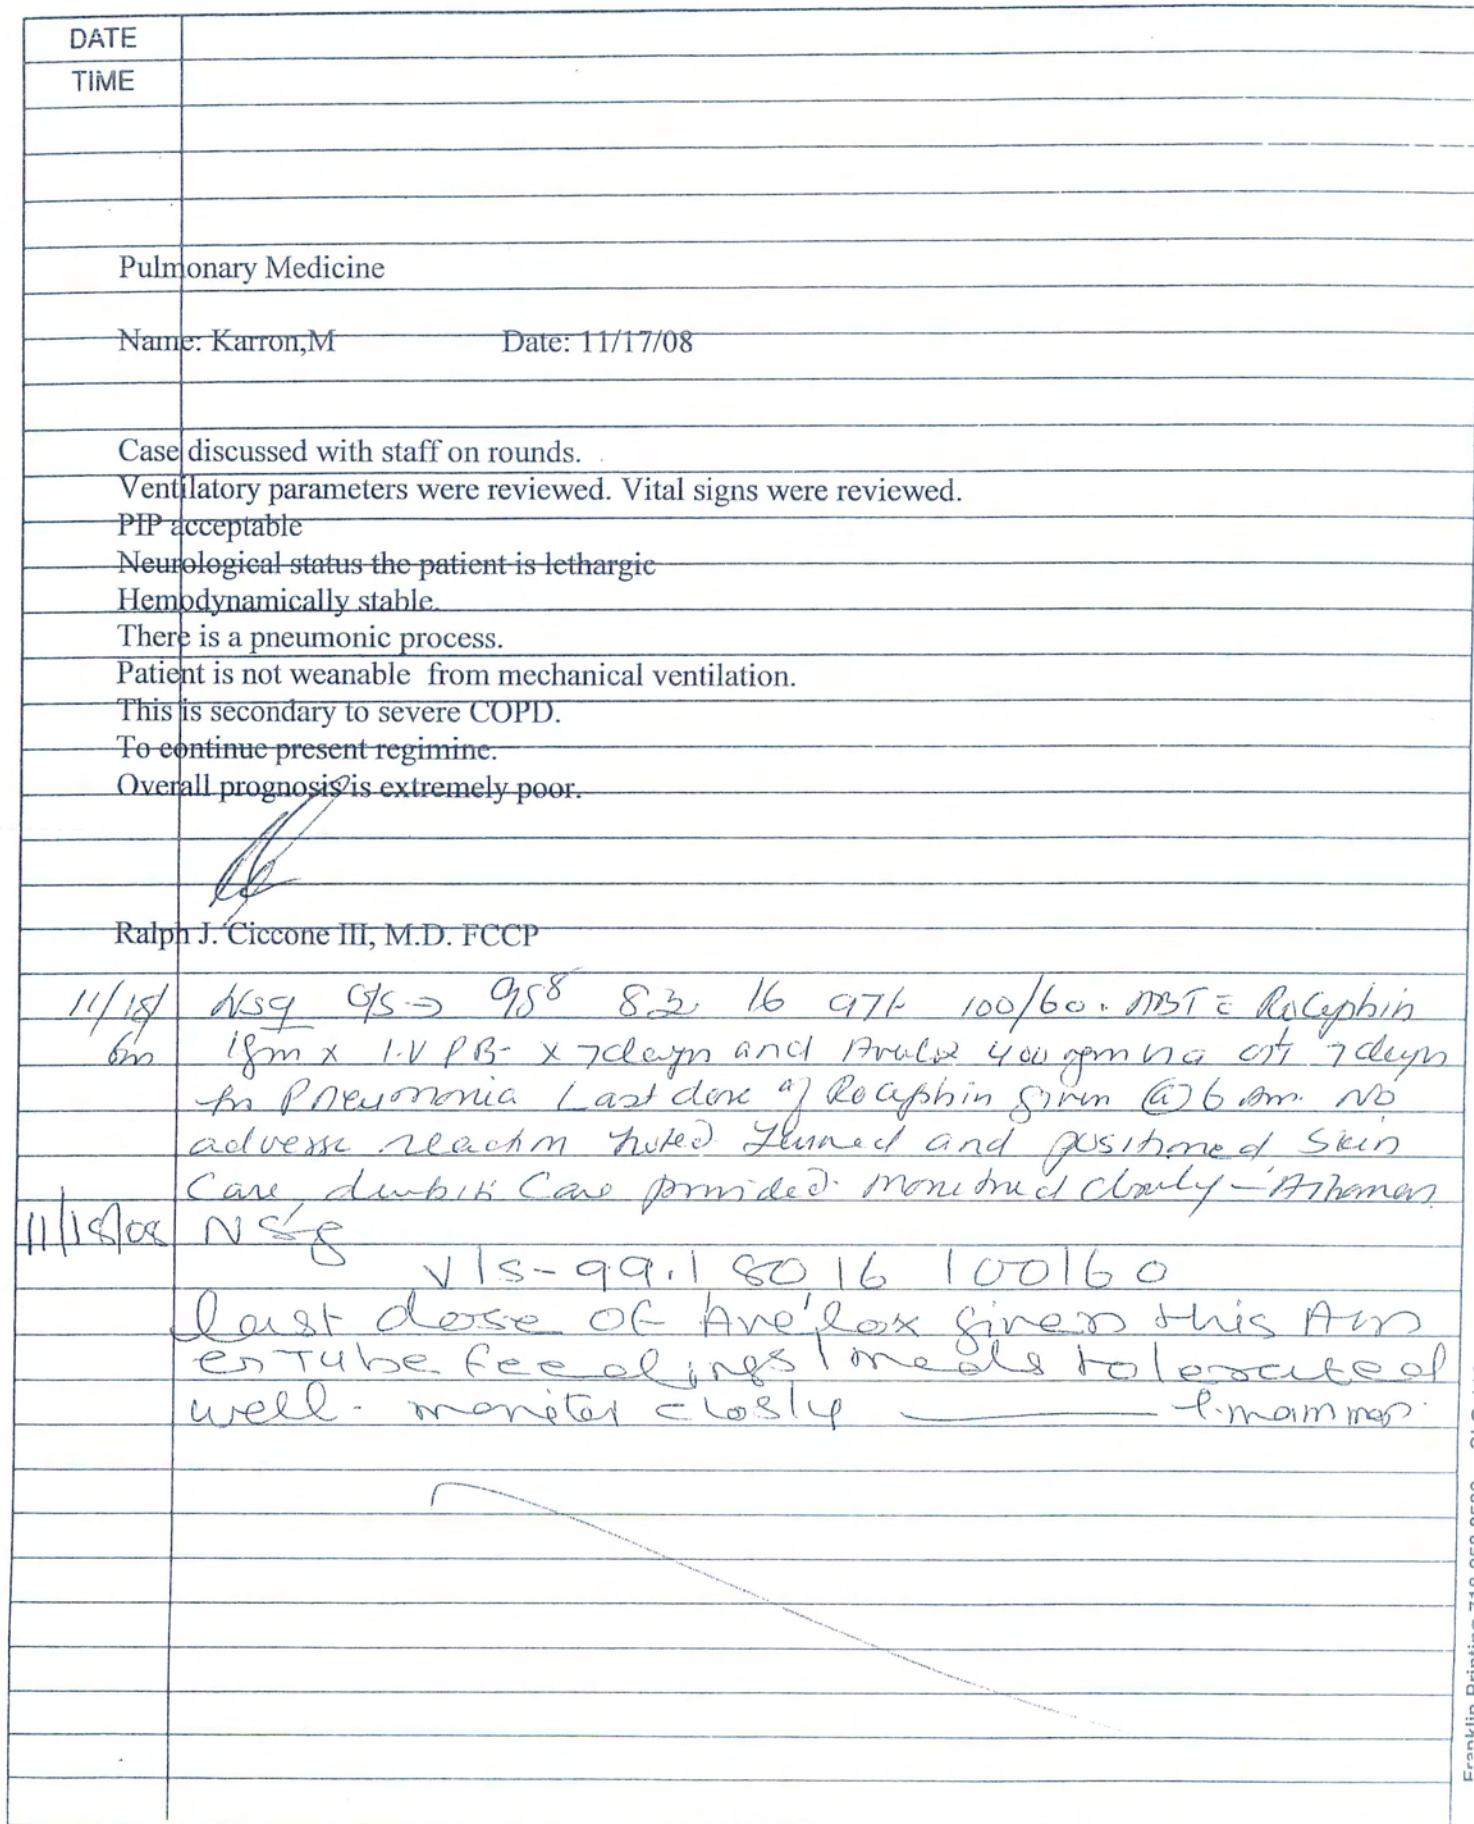 DATE
TIME
Pulmonary Medicine
Name: Karron,M Date: 11/17/08
Case discussed with staff on rounds.
Ventilatory parameters were reviewed. Vital signs were reviewed.
PIP acceptable
Neurological status the patient is lethargic
Hemodynamically stable.
There is a pneumonic process.
Patient is not weanable from mechanical ventilation.
This is secondary to severe COPD.
To continue present regimine.
Overall prognosis is extremely poor.
Ralph J. Ciccone III, M.D. FCCP
11/18/ Nsg 98⁸ 82 16 97% 100/60. ABT Rocephin
6am 1gm x I.V PB- x 7days and 7days
Pneumonia Last dose of Rocephin given @ 6 Am. No
adverse reaction noted. Turned and positioned Skin
Care Care provided. Monitored closely
11/18/08 NSg
V/S- 99.1 80 16 100/60
last dose of Avelox given this Am
Tube feedings / meds tolerated
well. moniter closly
Franklin Printing